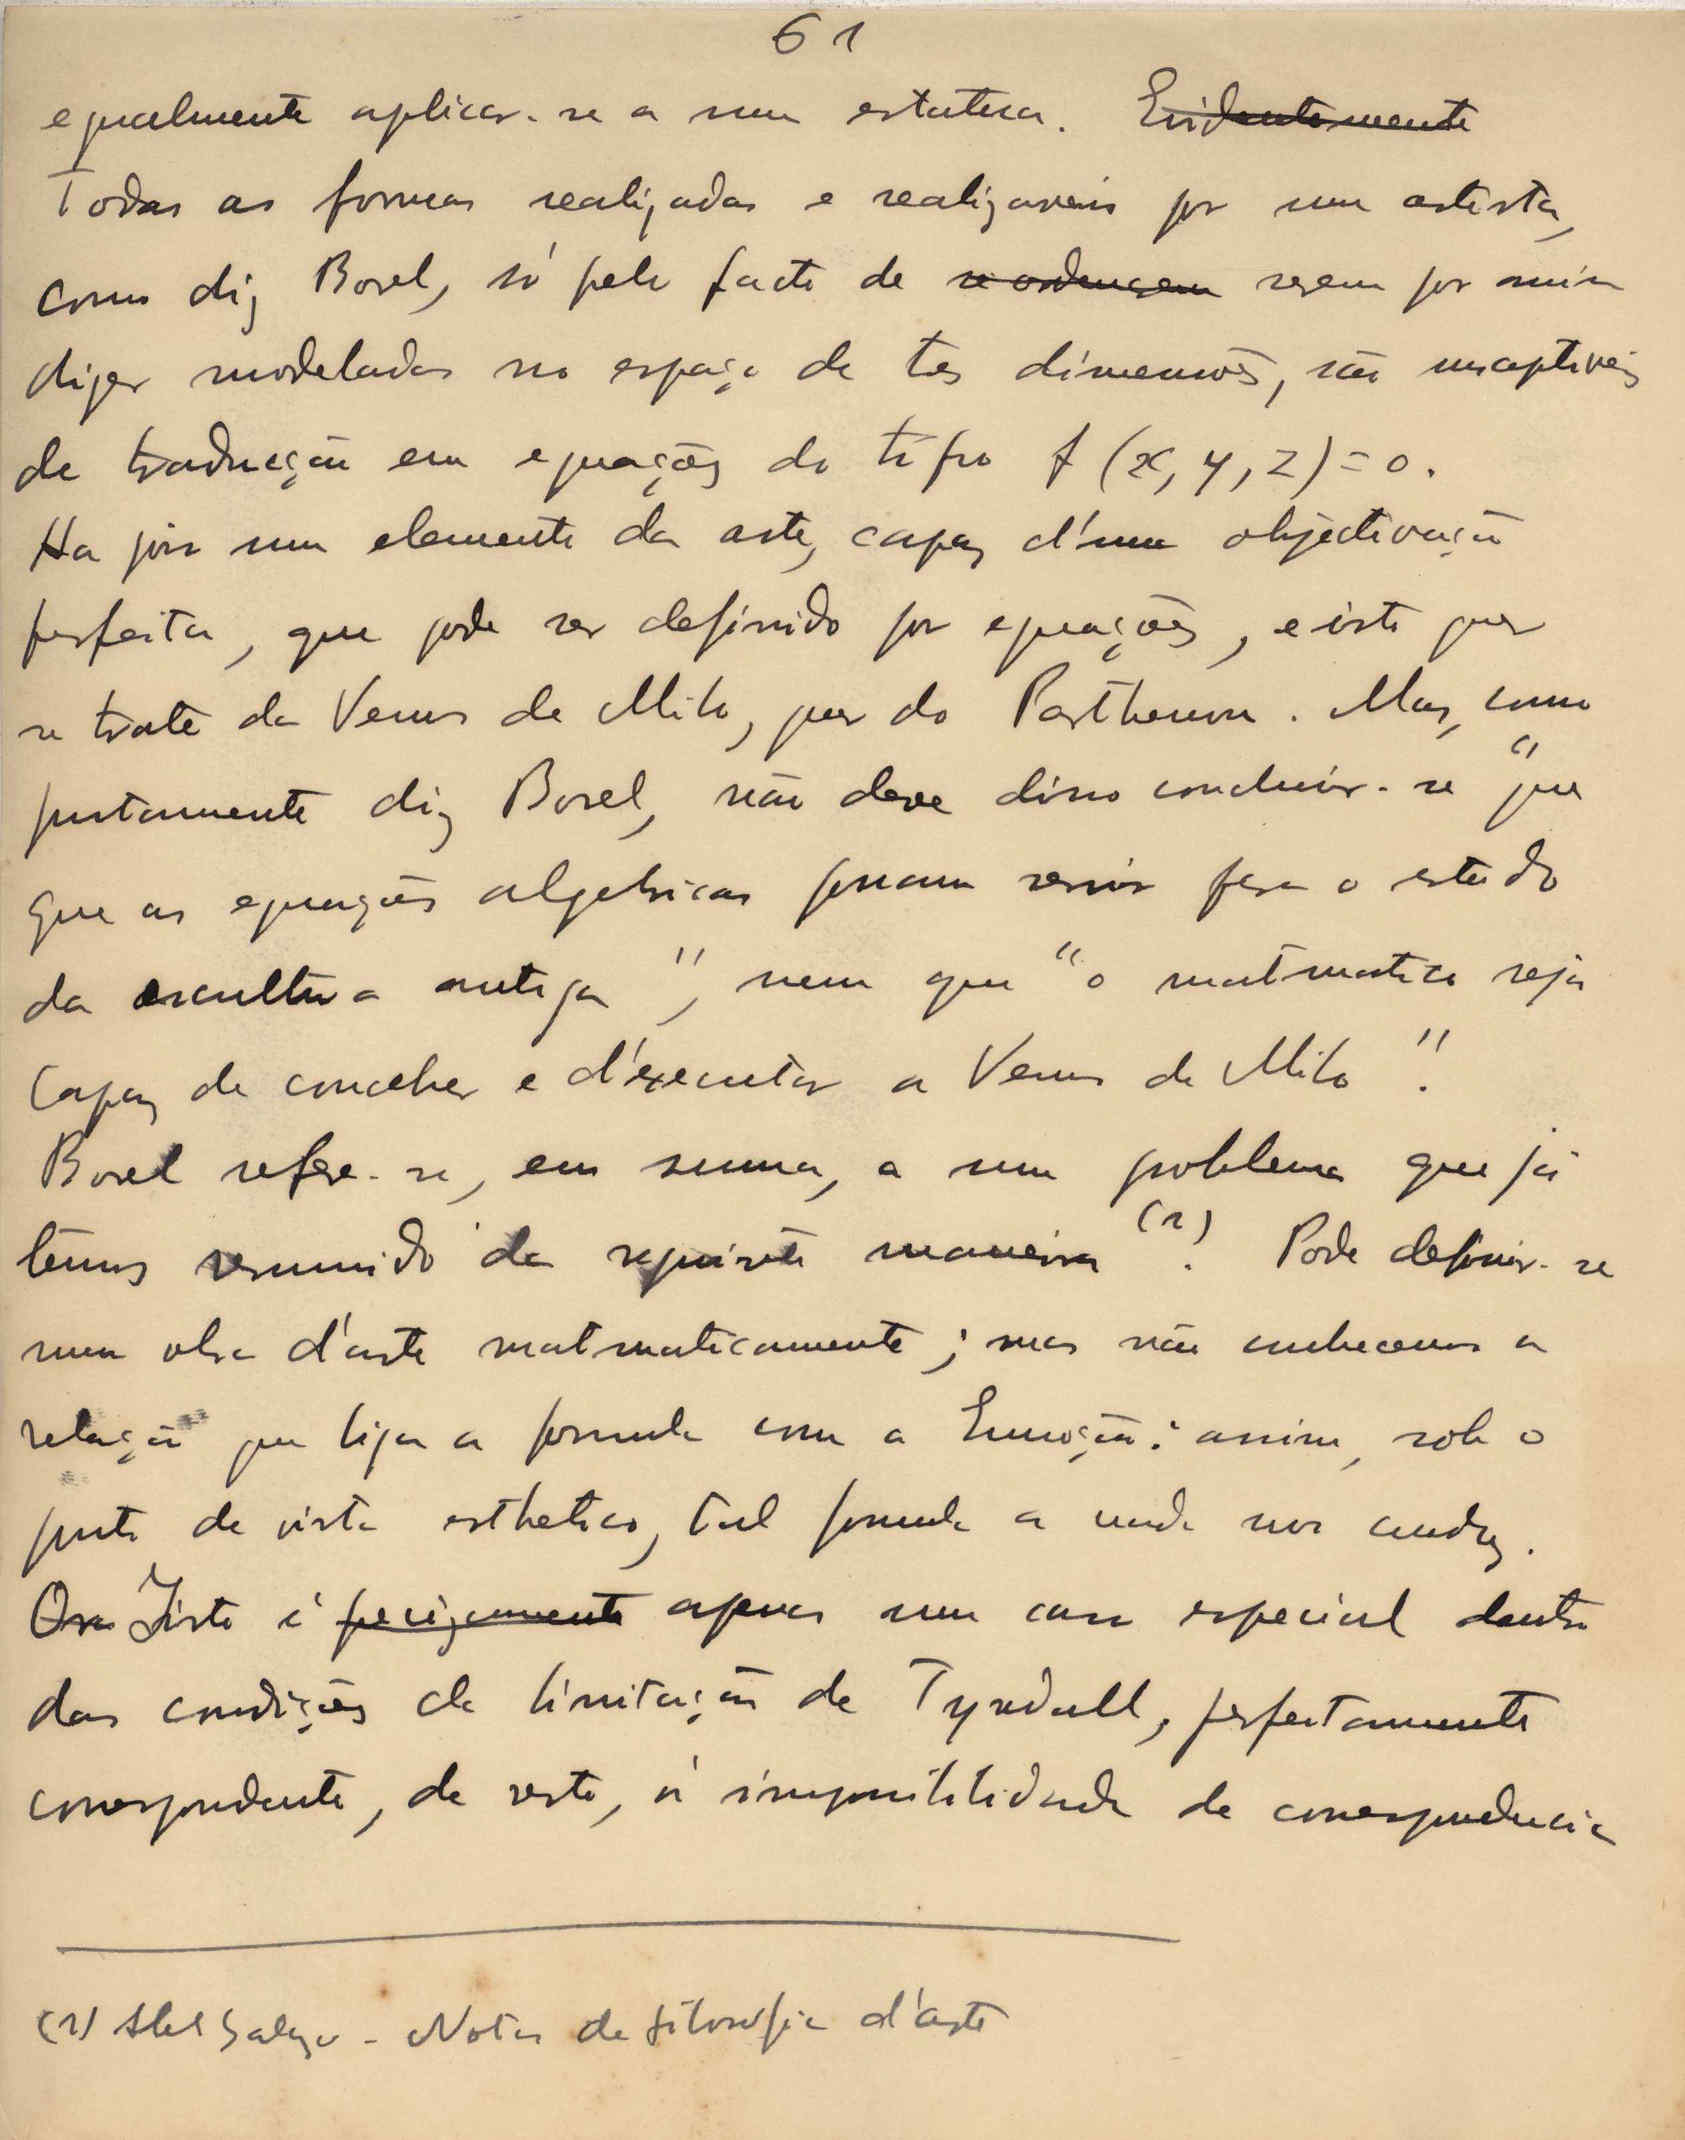 61
egualmente aplicar-se a uma estatua. Evidentemente
Todas as formas realizadas e realizaveis por um artista,
como diz Borel, só pelo facto de se ordenarem serem por assim
dizer modeladas no espaço de tres dimensões, são susceptiveis
de traducção em equações do tipo f (x, y, z) = 0.
Ha pois um elemento da arte, capaz d'uma objectivação
perfeita, que pode ser definido por equações, e isto quer
se trate da Venus de Milo, quer do Parthenon. Mas, como
justamente diz Borel, não deve disso concluir-se "que
que as equações algebricas possam servir para o estudo
da escultura antiga", nem que "o matematico seja
capaz de conceber e d'executar a Venus de Milo".
Borel refere-se, em suma, a um problema que já
temos resumido da seguinte maneira (1). Pode definir-se
uma obra d'arte matematicamente; mas não conhecemos a
relação que liga a formula com a Emoção: assim, sob o
ponto de vista esthetico, tal formula a nada nos conduz.
Ora Isto é precizamente apenas um caso especial dentro
das condições de limitação de Tyndall, perfeitamente
correspondente, de resto, á impossibilidade de correspondencia
(1) Abel Salazar - Notas de filosofia d'arte